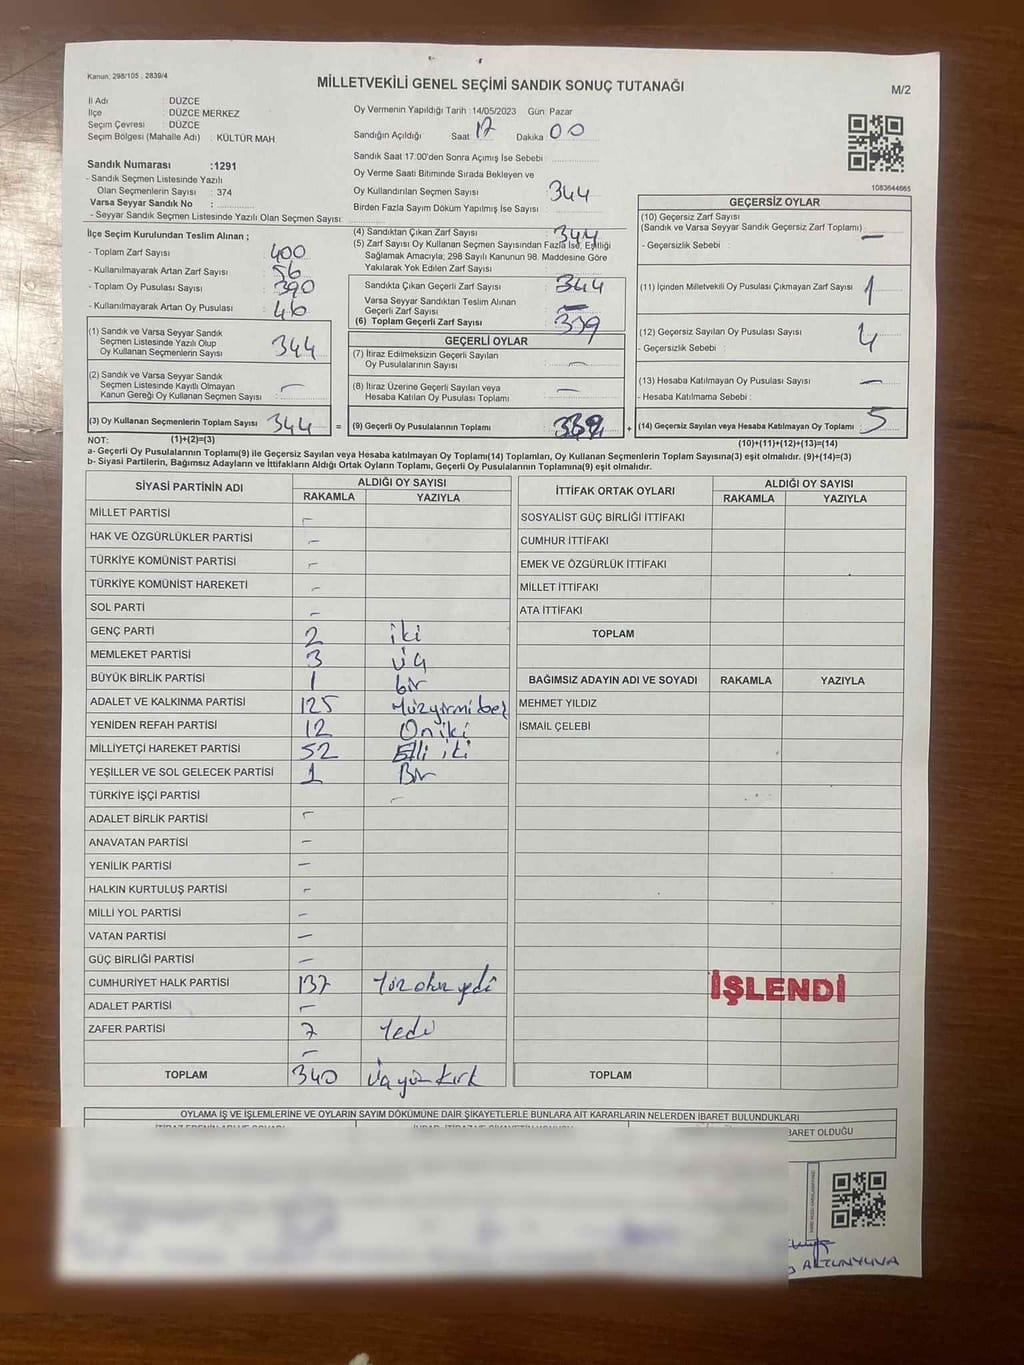 Kanun. 298/105 , 2839/4
MİLLETVEKİLİ GENEL SEÇİMİ SANDIK SONUÇ TUTANAĞI
M/2
İl Adı : DÜZCE
İlçe : DÜZCE MERKEZ
Seçim Çevresi : DÜZCE
Seçim Bölgesi (Mahalle Adı) : KÜLTÜR MAH.
Sandık Numarası :1291
- Sandık Seçmen Listesinde Yazılı
Olan Seçmenlerin Sayısı : 374
Varsa Seyyar Sandık No :
- Seyyar Sandık Seçmen Listesinde Yazılı Olan Seçmen Sayısı:
Oy Vermenin Yapıldığı Tarih :14/05/2023 Gün: Pazar
Sandığın Açıldığı Saat: 17 Dakika 00
Sandık Saat 17.00'den Sonra Açımış İse Sebebi :
Oy Verme Saati Bitiminde Sırada Bekleyen ve
Oy Kullandırılan Seçmen Sayısı : 344
Birden Fazla Sayım Döküm Yapılmış İse Sayısı :
1083644665
İlçe Seçim Kurulundan Teslim Alınan ;
- Toplam Zarf Sayısı : 400
- Kullanılmayarak Artan Zarf Sayısı : 56
- Toplam Oy Pusulası Sayısı : 390
- Kullanılmayarak Artan Oy Pusulası : 46
(1) Sandık ve Varsa Seyyar Sandık
Seçmen Listesinde Yazılı Olup
Oy Kullanan Seçmenlerin Sayısı : 344
(2) Sandık ve Varsa Seyyar Sandık
Seçmen Listesinde Kayıtlı Olmayan
Kanun Gereği Oy Kullanan Seçmen Sayısı : –
(3) Oy Kullanan Seçmenlerin Toplam Sayısı : 344 =
(4) Sandıktan Çıkan Zarf Sayısı : 344
(5) Zarf Sayısı Oy Kullanan Seçmen Sayısından Fazla İse, Eşitliği
Sağlamak Amacıyla; 298 Sayılı Kanunun 98. Maddesine Göre
Yakılarak Yok Edilen Zarf Sayısı :
Sandıkta Çıkan Geçerli Zarf Sayısı : 344
Varsa Seyyar Sandıktan Teslim Alınan
Geçerli Zarf Sayısı : –
(6) Toplam Geçerli Zarf Sayısı : 339
GEÇERLİ OYLAR
(7) İtiraz Edilmeksizin Geçerli Sayılan
Oy Pusulalarının Sayısı : –
(8) İtiraz Üzerine Geçerli Sayılan veya
Hesaba Katılan Oy Pusulası Toplamı : –
(9) Geçerli Oy Pusulalarının Toplamı : +
GEÇERSİZ OYLAR
(10) Geçersiz Zarf Sayısı
(Sandık ve Varsa Seyyar Sandık Geçersiz Zarf Toplamı) : –
- Geçersizlik Sebebi :
(11) İçinden Milletvekili Oy Pusulası Çıkmayan Zarf Sayısı : 1
(12) Geçersiz Sayılan Oy Pusulası Sayısı : 4
- Geçersizlik Sebebi :
(13) Hesaba Katılmayan Oy Pusulası Sayısı : –
- Hesaba Katılmama Sebebi :
(14) Geçersiz Sayılan veya Hesaba Katılmayan Oy Toplamı : 5
NOT: (1)+(2)=(3)
(10)+(11)+(12)+(13)=(14)
a- Geçerli Oy Pusulalarının Toplamı(9) ile Geçersiz Sayılan veya Hesaba katılmayan Oy Toplamı(14) Toplamları, Oy Kullanan Seçmenlerin Toplam Sayısına(3) eşit olmalıdır. (9)+(14)=(3)
b- Siyasi Partilerin, Bağımsız Adayların ve İttifakların Aldığı Ortak Oyların Toplamı, Geçerli Oy Pusulalarının Toplamına(9) eşit olmalıdır.
SİYASİ PARTİNİN ADI ALDIĞI OY SAYISI
RAKAMLA YAZIYLA
MİLLET PARTİSİ –
HAK VE ÖZGÜRLÜKLER PARTİSİ –
TÜRKİYE KOMÜNİST PARTİSİ –
TÜRKİYE KOMÜNİST HAREKETİ –
SOL PARTİ –
GENÇ PARTİ 2 iki
MEMLEKET PARTİSİ 3 üç
BÜYÜK BİRLİK PARTİSİ 1 bir
ADALET VE KALKINMA PARTİSİ 125 Yüzyirmibeş
YENİDEN REFAH PARTİSİ 12 Oniki
MİLLİYETÇİ HAREKET PARTİSİ 52 Elli iki
YEŞİLLER VE SOL GELECEK PARTİSİ 1 Bir
TÜRKİYE İŞÇİ PARTİSİ –
ADALET BİRLİK PARTİSİ –
ANAVATAN PARTİSİ –
YENİLİK PARTİSİ –
HALKIN KURTULUŞ PARTİSİ –
MİLLİ YOL PARTİSİ –
VATAN PARTİSİ –
GÜÇ BİRLİĞİ PARTİSİ –
CUMHURİYET HALK PARTİSİ 137 Yüz otuz yedi
ADALET PARTİSİ –
ZAFER PARTİSİ 7 Yedi
–
TOPLAM 340 Üçyüz kırk
İTTİFAK ORTAK OYLARI ALDIĞI OY SAYISI
RAKAMLA YAZIYLA
SOSYALİST GÜÇ BİRLİĞİ İTTİFAKI
CUMHUR İTTİFAKI
EMEK VE ÖZGÜRLÜK İTTİFAKI
MİLLET İTTİFAKI
ATA İTTİFAKI
TOPLAM
BAĞIMSIZ ADAYIN ADI VE SOYADI RAKAMLA YAZIYLA
MEHMET YILDIZ
İSMAİL ÇELEBİ
İŞLENDİ
TOPLAM
OYLAMA İŞ VE İŞLEMLERİNE VE OYLARIN SAYIM DÖKÜMÜNE DAİR ŞİKAYETLERLE BUNLARA AİT KARARLARIN NELERDEN İBARET BULUNDUKLARI
BARET OLDUĞU
ALTUNYUVA